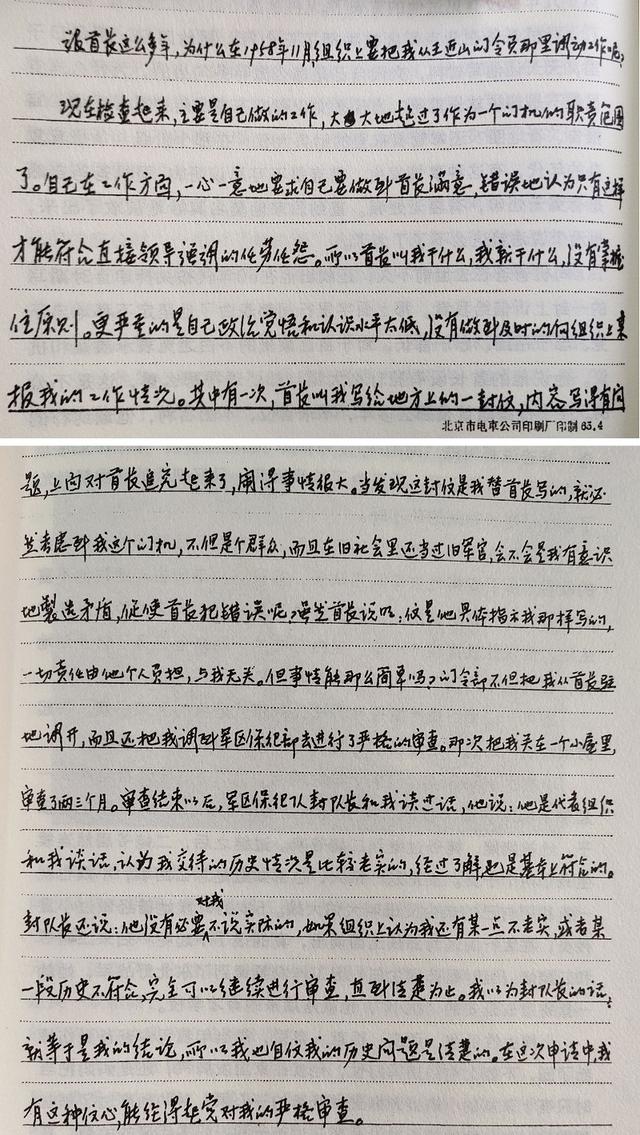 跟首长这么多年，为什么在1958年11月，组织上要把我从王近山司令员那里调动工作呢？
现在检查起来，主要是自己做的工作，大大地超过了作为一个司机的职责范围
了。自己在工作方面，一心一意地要求自己要做到首长满意，错误地认为只有这样
才能符合直接领导强调的任劳任怨。所以首长叫我干什么，我就干什么，没有掌握
住原则。更严重的是自己政治觉悟和认识水平太低，没有做到及时的向组织上汇
报我的工作情况。其中有一次，首长叫我写给地方上的一封信，内容写得有问
北京市电车公司印刷厂印制 63.4
题，上面对首长追究起来了，闹得事情很大。当发现这封信是我替首长写的，就必
然考虑到我这个司机，不但是个群众，而且在旧社会里还当过旧军官，会不会是我有意识
地製造矛盾，促使首长犯错误呢？虽然首长说明：信是他具体指示我那样写的，
一切责任由他个人负担，与我无关。但事情能那么简单吗？司令部不但把我从首长驻
地调开，而且还把我调到军区保纪部去进行了严格的审查。那次把我关在一个小屋里，
审查了两三个月。审查结束以后，军区保纪队封队长和我谈过话，他说：他是代表组织
和我谈话，认为我交待的历史情况是比较老实的，经过了解也是基本上符合的。
封队长还说：他没有必要对我不说实际的，如果组织上认为我还有某一点不老实，或者某
一段历史不符合，完全可以继续进行审查，直到清楚为止。我以为封队长的话，
就等于是我的结论，所以我也自信我的历史问题是清楚的。在这次申请中，我
有这种信心，能经得起党对我的严格审查。